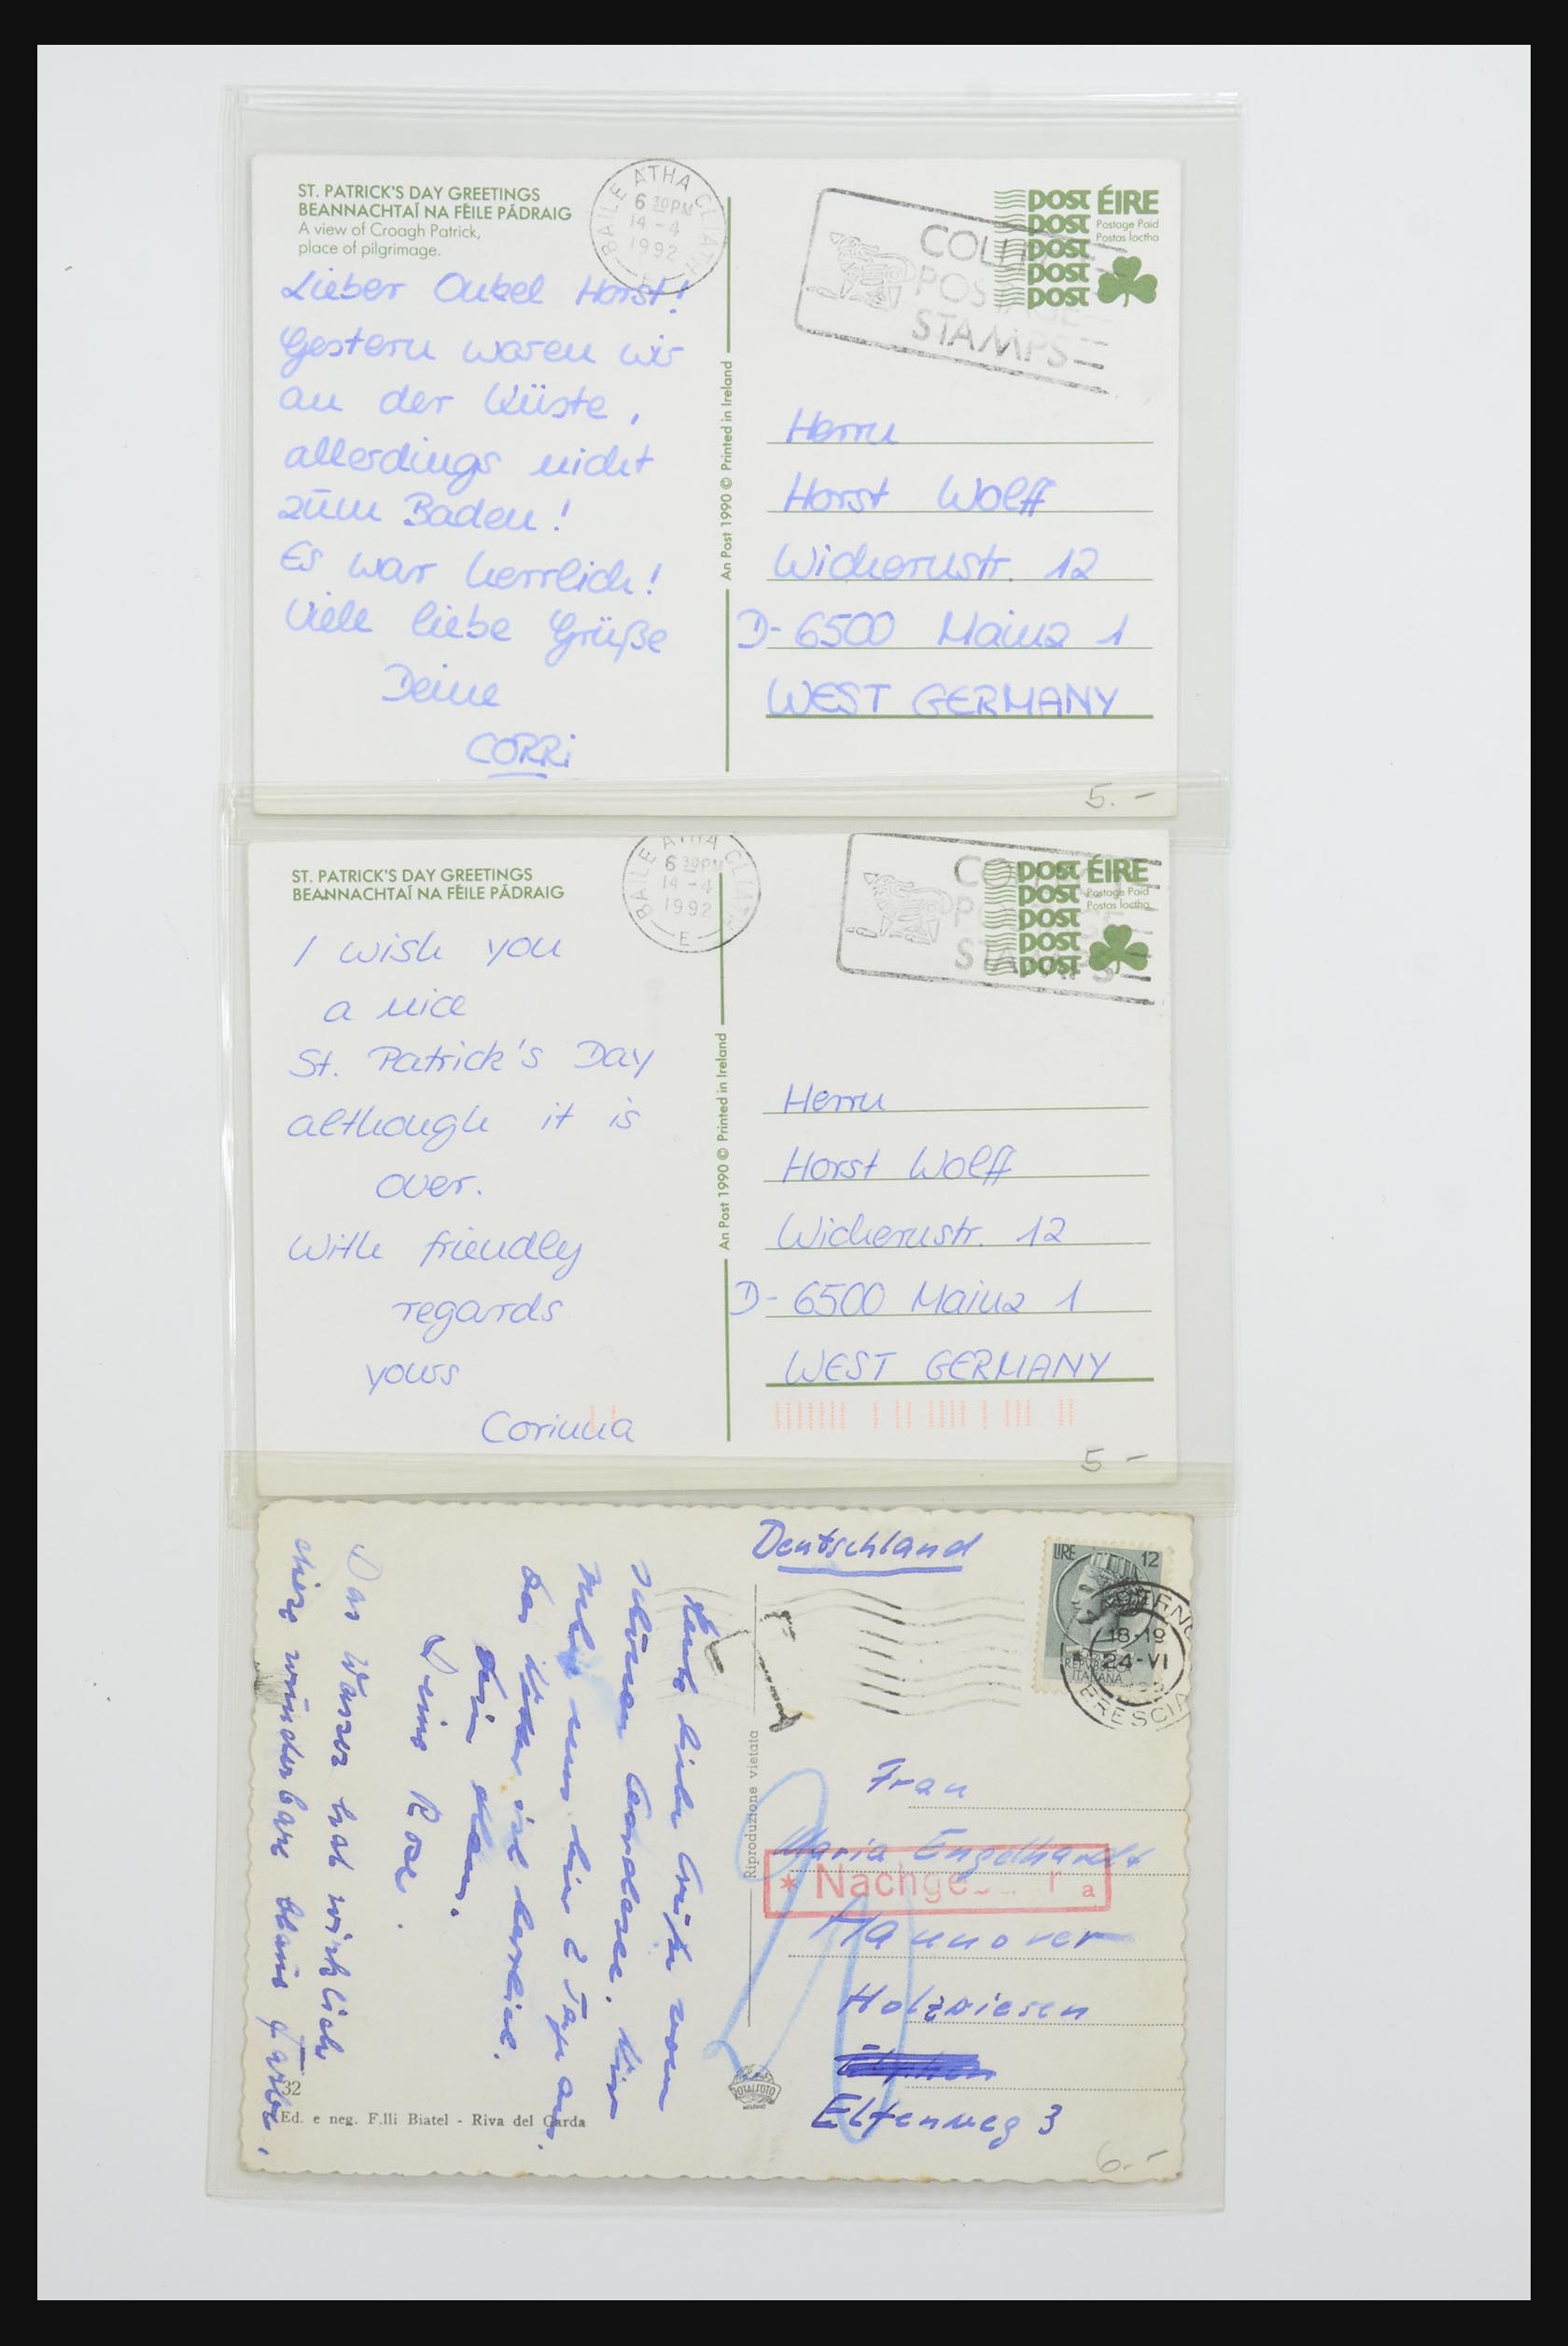 ST. PATRICK'S DAY GREETINGS
BEANNACHTAÍ NA FÉILE PÁDRAIG
A view of Croagh Patrick,
place of pilgrimage.
BAILE ATHA CLIATH
6 30PM
14-4
1992
E
POST ÉIRE
POST Postage Paid
POST Postas Íoctha
POST
POST
STAMPS
Lieber Onkel Horst!
Gestern waren wir
an der Küste,
allerdings nicht
zum Baden!
Es war herrlich!
Viele liebe Grüße
Deine
CORRi
An Post 1990 © Printed in Ireland
Herrn
Horst Wolff
Wichernstr. 12
D-6500 Mainz 1
WEST GERMANY
5.-
ST. PATRICK'S DAY GREETINGS
BEANNACHTAÍ NA FÉILE PÁDRAIG
BAILE ATHA CLIATH
6 30PM
14-4
1992
E
POST ÉIRE
POST Postage Paid
POST Postas Íoctha
POST
POST
I wish you
a nice
St. Patrick's Day
although it is
over.
With friendly
regards
yours
Corinna
An Post 1990 © Printed in Ireland
Herrn
Horst Wolff
Wichernstr. 12
D-6500 Mainz 1
WEST GERMANY
5-
Deutschland
LIRE 12
REPUBBLICA
ITALIANA
18-19
24-VI
BRESCIA
liebe Grüße vom
schönen Gardasee. Wir
sind nun hier 2 Tage
das ist herrlich.
Deine Rose.
Das Wasser hat wirklich
diese wunderbare blaue Farbe,
Riproduzione vietata
Frau
Maria Engelhardt
Hannover
Holzwiesen
Eltenweg 3
32
Ed. e neg. F.lli Biatel - Riva del Garda
TOTALFOTO
6.-